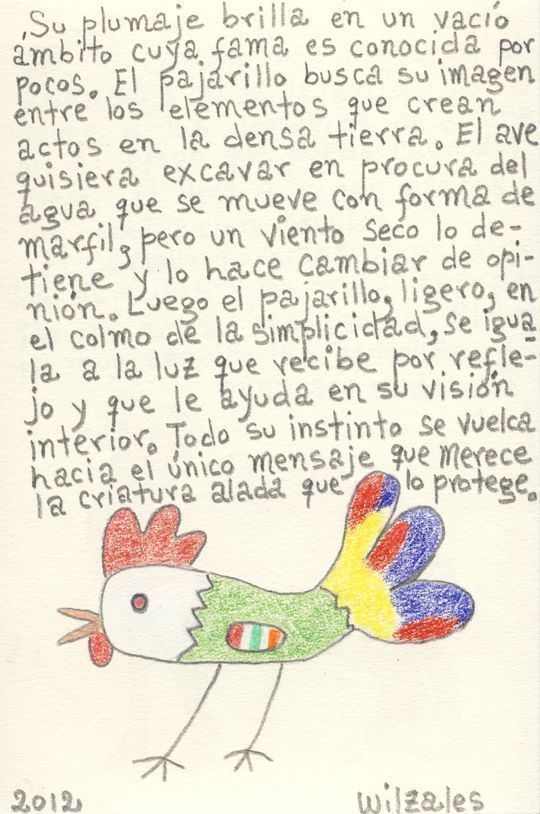 Su plumaje brilla en un vacío
ámbito cuya fama es conocida por
pocos. El pajarillo busca su imagen
entre los elementos que crean
actos en la densa tierra. El ave
quisiera excavar en procura del
agua que se mueve con forma de
marfil, pero un viento seco lo de-
tiene y lo hace cambiar de opi-
nión. Luego el pajarillo, ligero, en
el colmo de la simplicidad, se igua-
la a la luz que recibe por refle-
jo y que le ayuda en su visión
interior. Todo su instinto se vuelca
hacia el único mensaje que merece
la criatura alada que lo protege.
2012 Wilzales